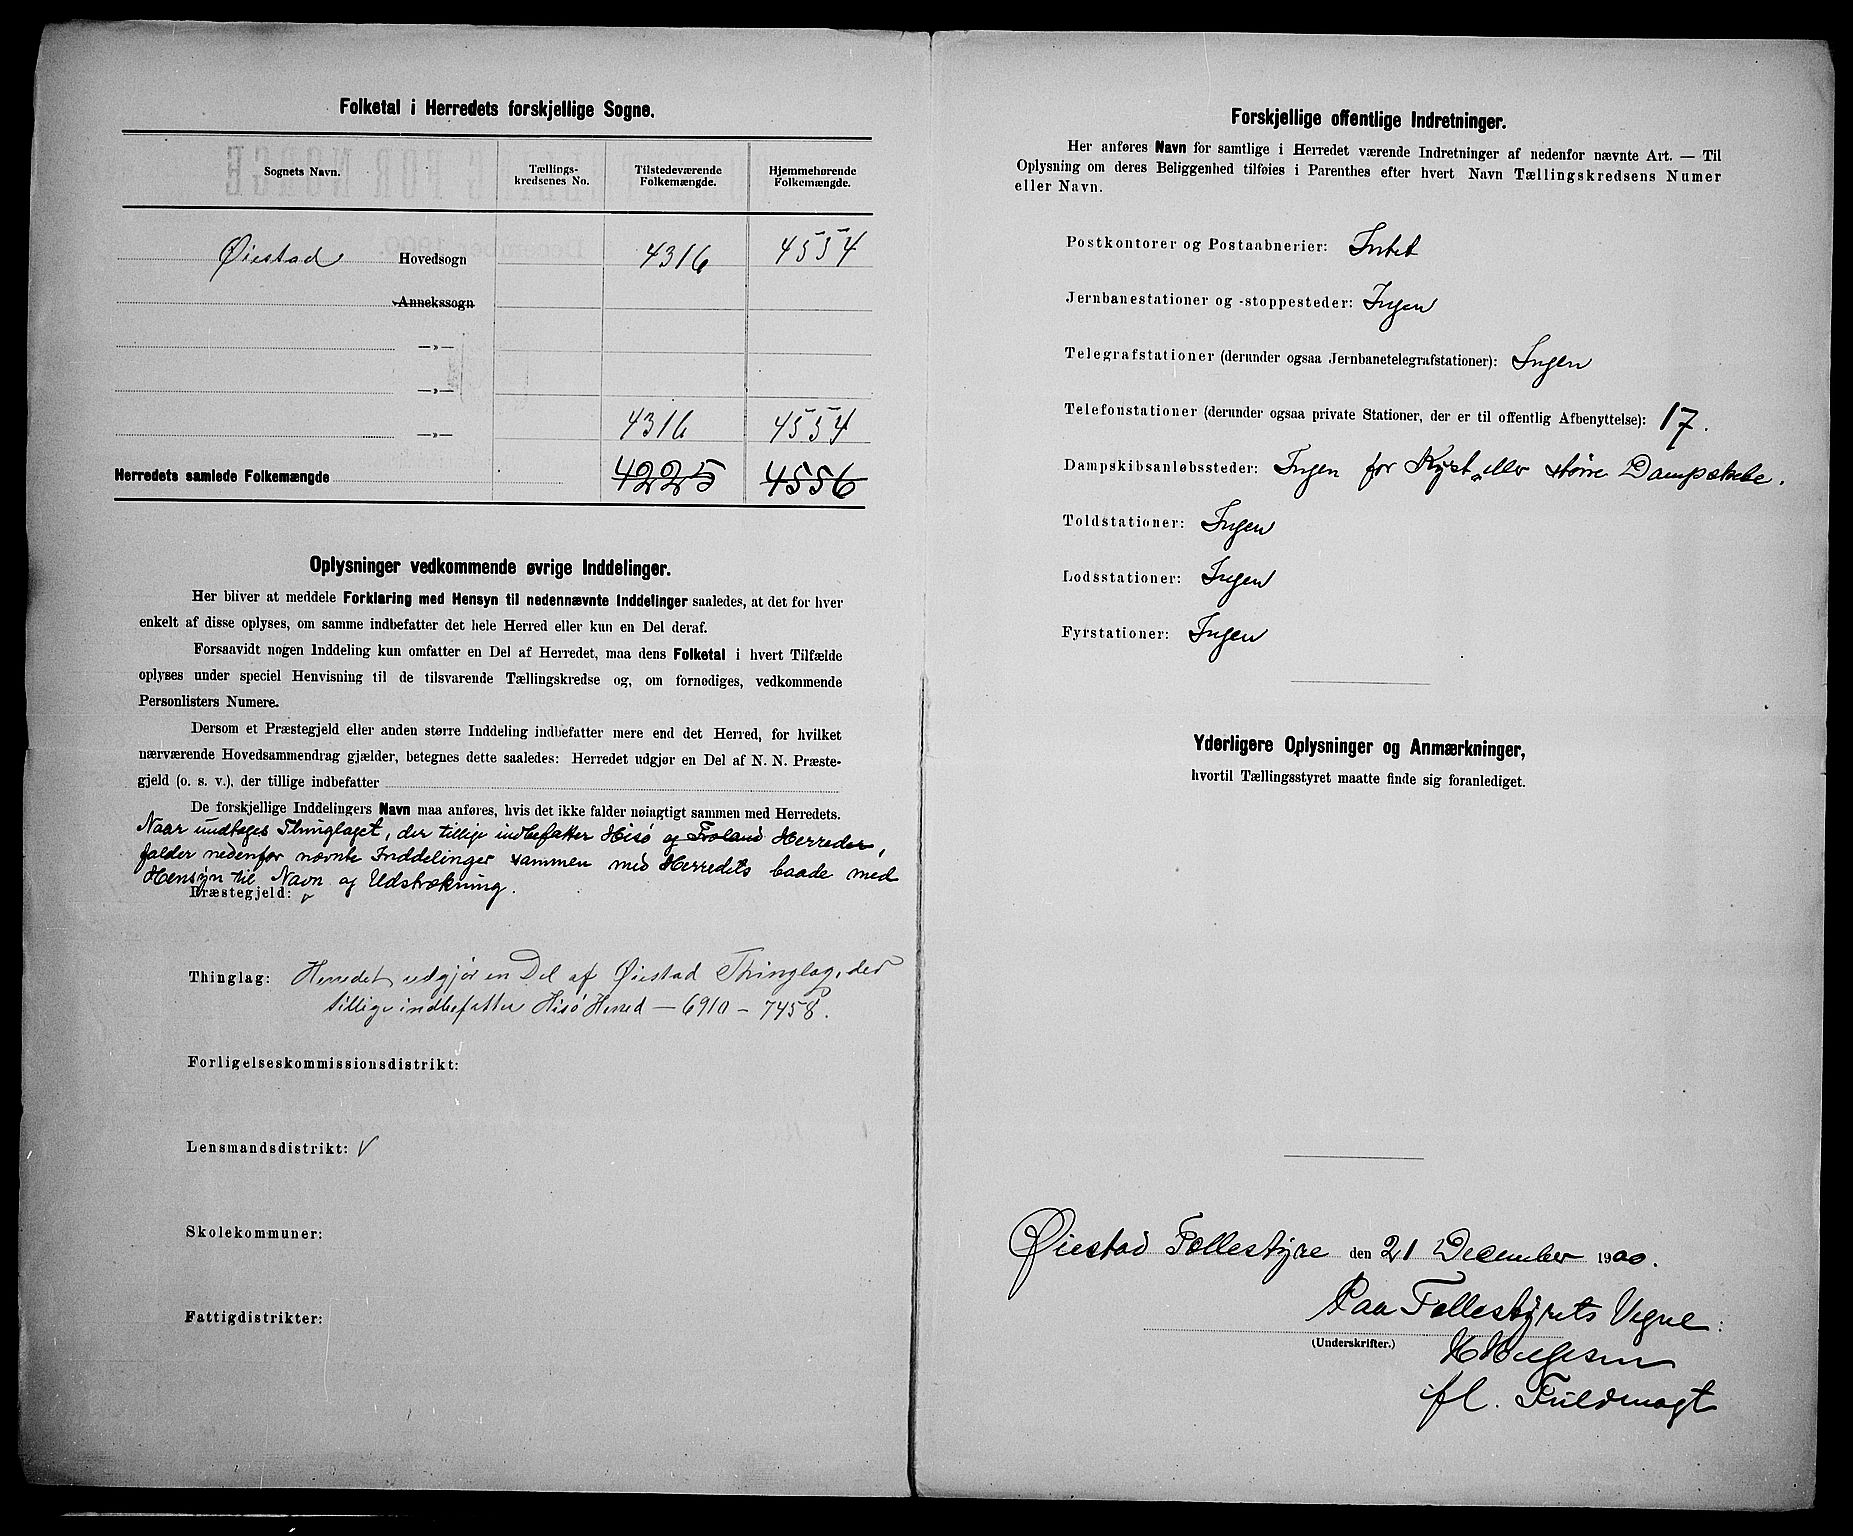 Folketal i Herredets forskjellige Sogne.
Sognets Navn. Tællings-kredsenes No. Tilstedeværende Folkemængde. Hjemmehørende Folkemængde.
Øiestad Hovedsogn 4316 4554
Annekssogn
—»—
—»—
—»— 4316 4554
Herredets samlede Folkemængde 4225 4556
Oplysninger vedkommende øvrige Inddelinger.
Her bliver at meddele Forklaring med Hensyn til nedennævnte Inddelinger saaledes, at det for hver
enkelt af disse oplyses, om samme indbefatter det hele Herred eller kun en Del deraf.
Forsaavidt nogen Inddeling kun omfatter en Del af Herredet, maa dens Folketal i hvert Tilfælde
oplyses under speciel Henvisning til de tilsvarende Tællingskredse og, om fornødiges, vedkommende
Personlisters Numere.
Dersom et Præstegjeld eller anden større Inddeling indbefatter mere end det Herred, for hvilket
nærværende Hovedsammendrag gjælder, betegnes dette saaledes: Herredet udgjør en Del af N. N. Præste-
gjeld (o. s. v.), der tillige indbefatter
De forskjellige Inddelingers Navn maa anføres, hvis det ikke falder nøiagtigt sammen med Herredets.
Naar undtages Thinglaget, der tillige indbefatter Hisø og Froland Herreder,
falder nedenfor nævnte Inddelinger sammen med Herredets baade med
Hensyn til Navn og Udstrækning.
Præstegjeld:
Thinglag: Herredet udgjør en Del af Øiestad Thinglag, der
tillige indbefatter Hisø Herred — 6910 – 7458.
Forligelseskommissionsdistrikt:
Lensmandsdistrikt: V
Skolekommuner:
Fattigdistrikter:
Forskjellige offentlige Indretninger.
Her anføres Navn for samtlige i Herredet værende Indretninger af nedenfor nævnte Art. — Til
Oplysning om deres Beliggenhed tilføies i Parenthes efter hvert Navn Tællingskredsens Numer
eller Navn.
Postkontorer og Postaabnerier: Intet
Jernbanestationer og -stoppesteder: Ingen
Telegrafstationer (derunder ogsaa Jernbanetelegrafstationer): Ingen
Telefonstationer (derunder ogsaa private Stationer, der er til offentlig Afbenyttelse): 17.
Dampskibsanløbssteder: Ingen for Kyst- eller større Dampskibe.
Toldstationer: Ingen
Lodsstationer: Ingen
Fyrstationer: Ingen
Yderligere Oplysninger og Anmærkninger,
hvortil Tællingsstyret maatte finde sig foranlediget.
Øiestad Tællestyre den 21 December 1900.
Paa Tællestyrets Vegne:
(Underskrifter.)
fl. Fuldmagt